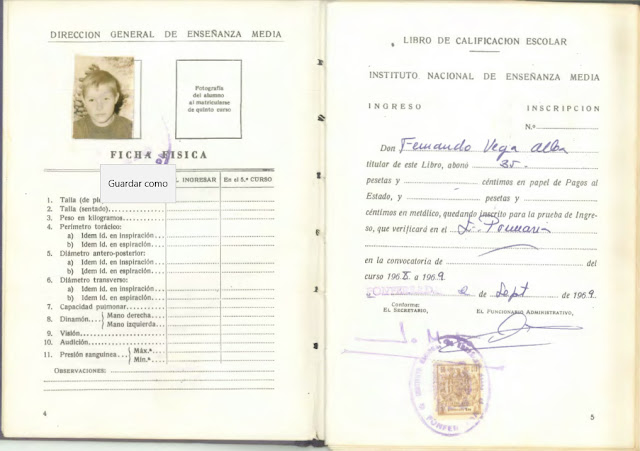 DIRECCION GENERAL DE ENSEÑANZA MEDIA
Fotografía
del alumno
al matricularse
de quinto curso
FICHA FISICA
Guardar como
INGRESAR En el 5.º CURSO
1. Talla (de
2. Talla (sentado)
3. Peso en kilogramos
4. Perímetro torácico:
a) Idem íd. en inspiración
b) Idem íd. en espiración
5. Diámetro antero-posterior:
a) Idem íd. en inspiración
b) Idem íd. en espiración
6. Diámetro transverso:
a) Idem íd. en inspiración
b) Idem íd. en espiración
7. Capacidad pulmonar
8. Dinamón.... Mano derecha
Mano izquierda
9. Visión
10. Audición
11. Presión sanguínea Máx.ª
Mín.ª
OBSERVACIONES:
4
LIBRO DE CALIFICACION ESCOLAR
INSTITUTO NACIONAL DE ENSEÑANZA MEDIA
INGRESO INSCRIPCION
N.º
Don Fernando Vega Alba
titular de este Libro, abonó 35.
pesetas y céntimos en papel de Pagos al
Estado, y pesetas y
céntimos en metálico, quedando inscrito para la prueba de Ingre-
so, que verificará en el
en la convocatoria de del
curso 1968 a 1969
PONFERRADA a 2 de Sept de 1969
Conforme:
EL SECRETARIO, EL FUNCIONARIO ADMINISTRATIVO,
5